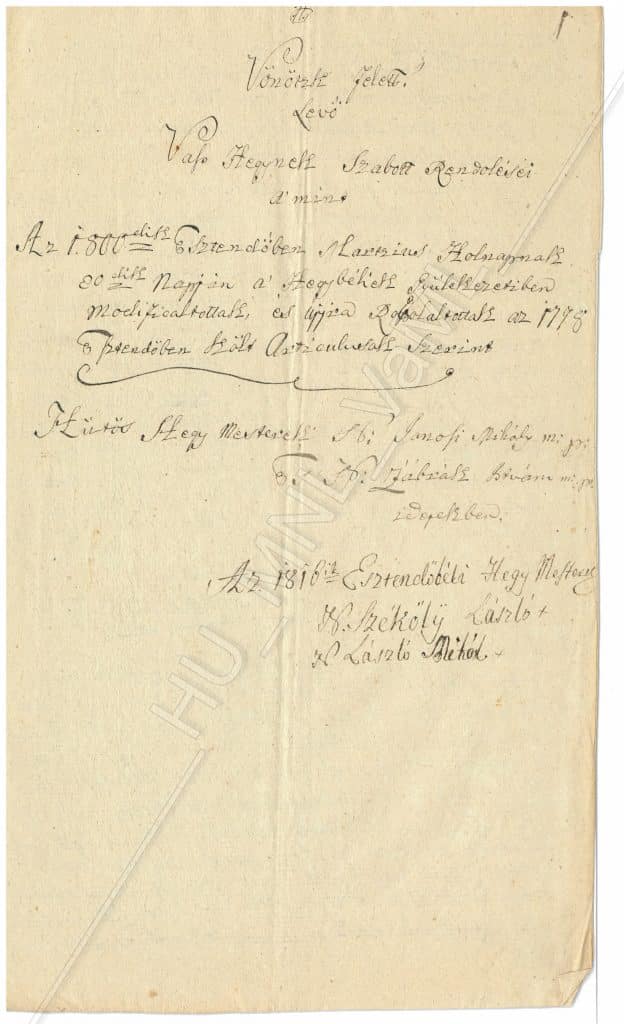 1
Vönötzk felett
Levő
Vas Hegynek Szabott Rendölései
a' mint
Az 1800dik Esztendőben Martzius Holnapnak
30dik Napján a' Hegybéliek Gyülekezetiben
modificaltottak, és ujjra Roboláltottak az 1778
Esztendőben költ Articulusok Szerint
Hütös Hegy Mesterek N: Janosi Mihály m. pr:
Es N: Zábrák István m. pr.
idejekben.
Az 1816ik Esztendőbéli Hegy Mesterek
N. Széköly László +
N László Mihál +
HU_MNL_VaML